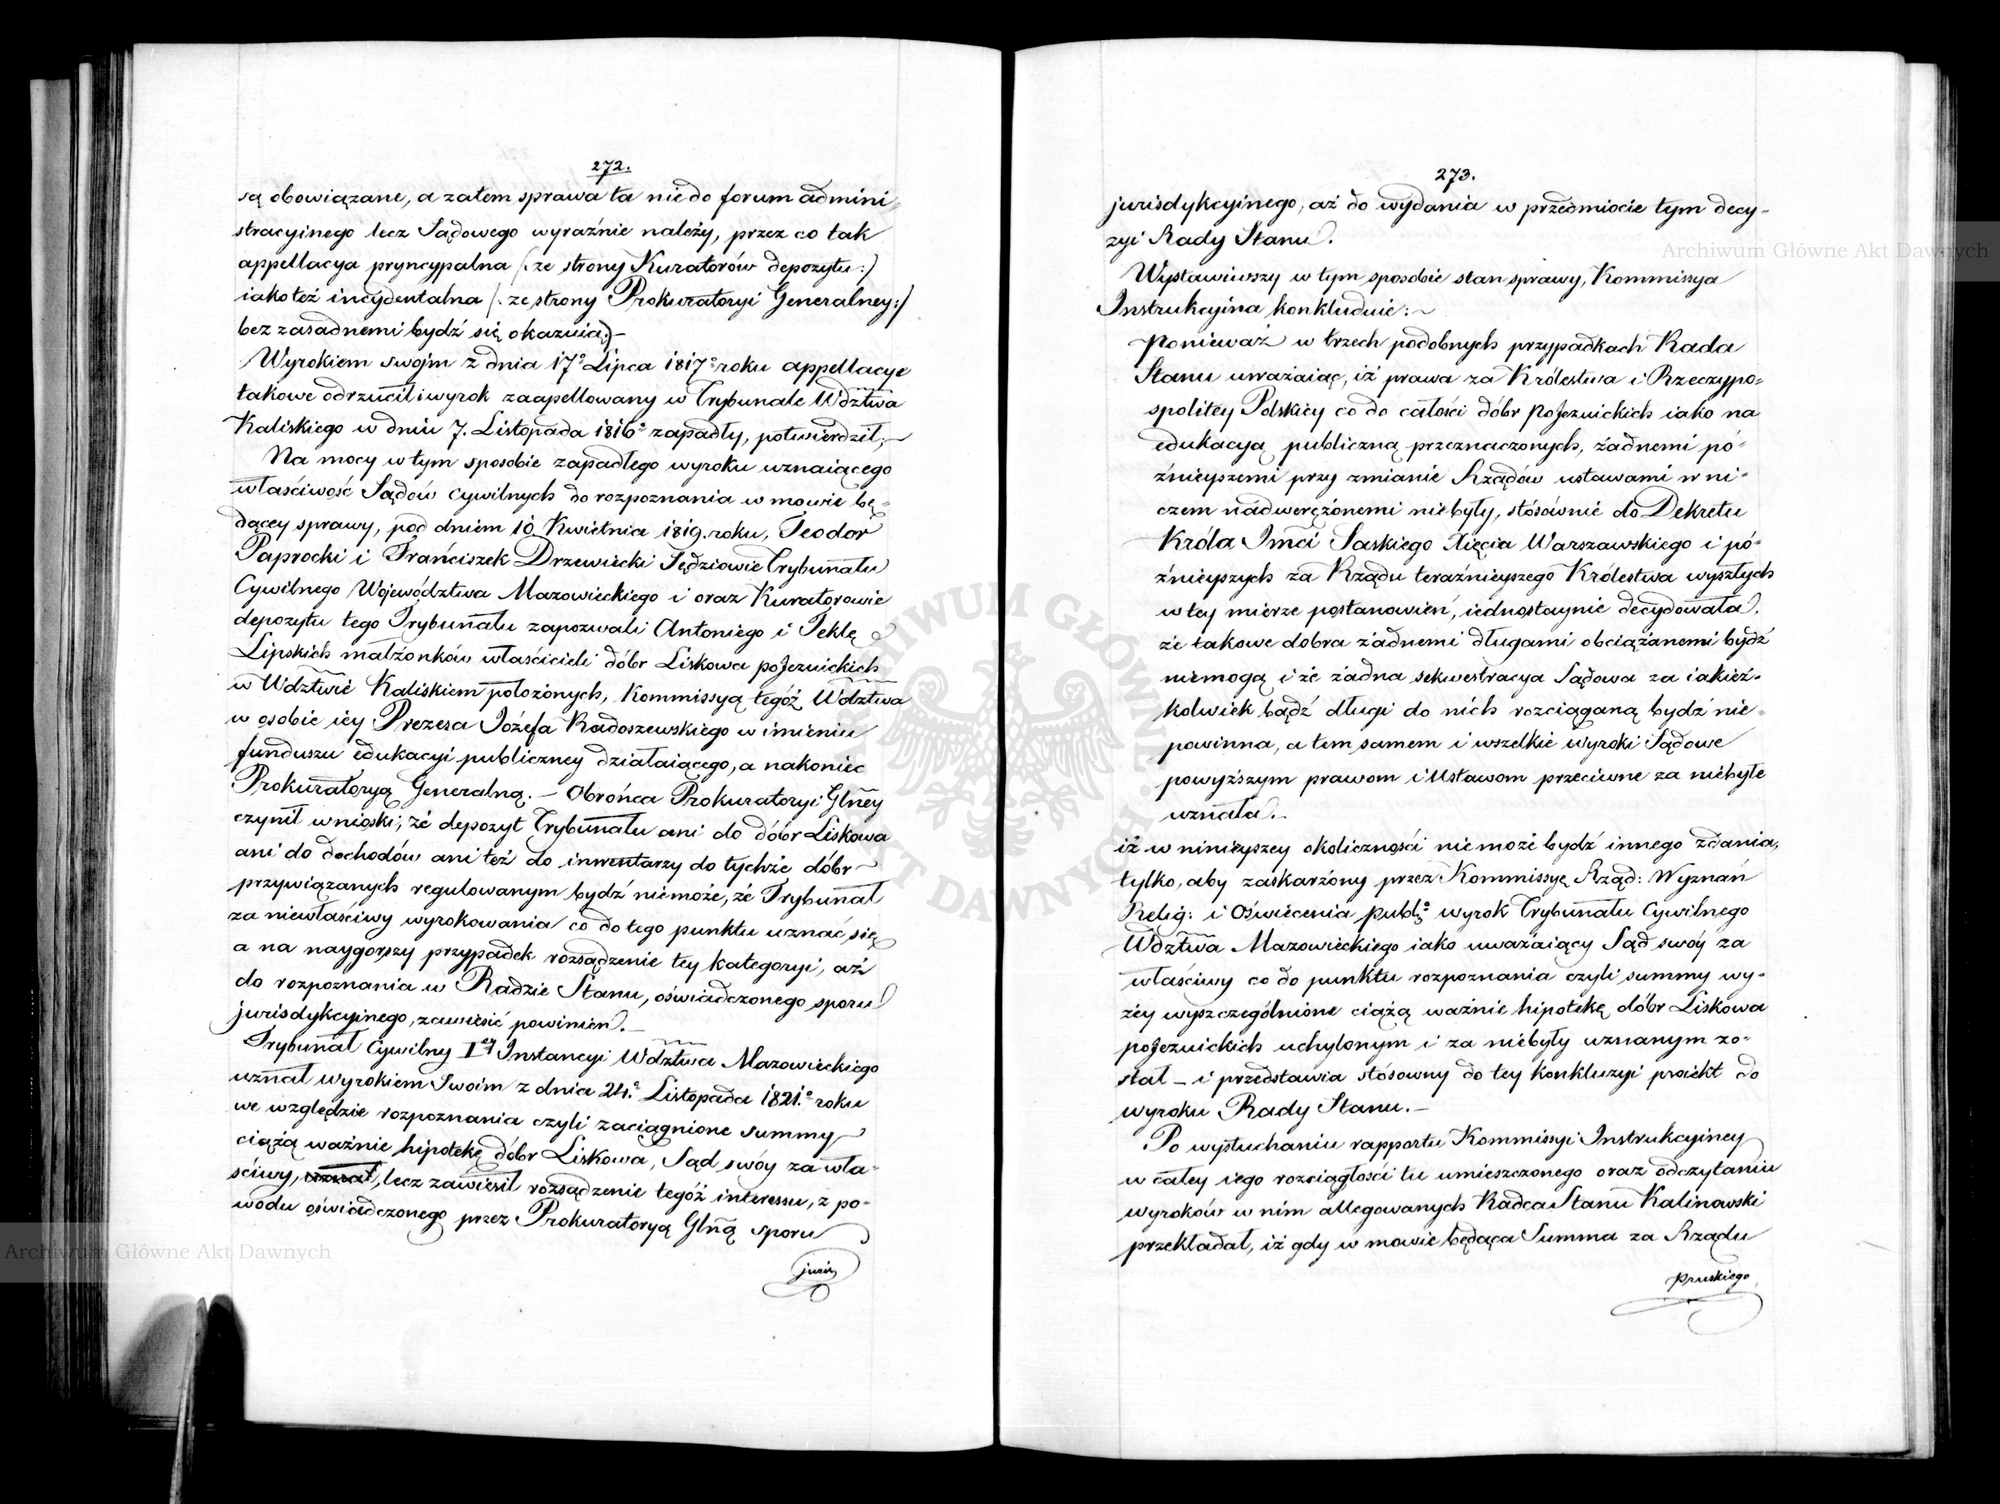 272.
są obowiązane, a zatem sprawa ta nie do forum admini-
stracyinego lecz Sądowego wyraźnie należy, przez co tak
appellacya pryncypalna /: ze strony Kuratorów depozytu :/
iako też incydentalna /: ze strony Prokuratoryi Generalney :/
bez zasadnemi bydź się okazuią. —
Wyrokiem swoim z dnia 17º Lipca 1817º roku appellacye
takowe odrzucił i wyrok zaapellowany w Trybunale Wdztwa
Kaliskiego w dniu 7. Listopada 1816º zapadły, potwierdził; —
Na mocy w tym sposobie zapadłego wyroku uznaiącego
właściwość Sądów Cywilnych do rozpoznania w mowie bę-
dącey sprawy, pod dniem 10 Kwietnia 1819. roku, Teodor
Paprocki i Franciszek Drzewiecki Sędziowie Trybunału
Cywilnego Województwa Mazowieckiego i oraz Kuratorowie
depozytu tego Trybunału zapozwali Antoniego i Teklę
Lipskich małżonków właścicieli dóbr Liskowa pojezuickich
w Wdztwie Kaliskiem położonych, Kommissyą tegóż Wdztwa
w osobie iey Prezesa Józefa Radoszewskiego w imieniu
funduszu edukacyi publiczney działaiącego, a nakoniec
Prokuratoryą Generalną. — Obrońca Prokuratoryi Glney
czynił wnioski; że depozyt Trybunału ani do dóbr Liskowa
ani do dochodów ani też do inwentarzy do tychże dóbr
przywiązanych regulowanym bydź niemoże, że Trybunał
za niewłaściwy wyrokowania co do tego punktu uznać się
a na naygorszy przypadek rozsądzenie tey kategoryi, aż
do rozpoznania w Radzie Stanu, oświadczonego sporu
jurisdykcyinego, zawiesić powinien. —
Trybunał Cywilny Iey Instancyi Wdztwa Mazowieckiego
uznał wyrokiem Swoim z dnia 24.º Listopada 1821.º roku
we względzie rozpoznania czyli zaciągnione summy
ciążą ważnie hipotekę dóbr Liskowa, Sąd swóy za wła-
ściwy, uznał, lecz zawiesił rozsądzenie tegóż interessu, z po-
wodu oświadczonego przez Prokuratoryą Glną sporu
juris
273.
jurisdykcyinego, aż do wydania w przedmiocie tym decy-
zyi Rady Stanu.
Wystawiwszy w tym sposobie stan sprawy, Kommissya
Instrukcyina konkluduie: —
Ponieważ w trzech podobnych przypadkach Rada
Stanu uważaiąc, iż prawa za Królestwa i Rzeczypo-
spolitey Polskiey co do całości dóbr pojezuickich iako na
edukacyą publiczną przeznaczonych, żadnemi pó-
źnieyszemi przy zmianie Rządów ustawami w ni-
czem nadwerężonemi niebyły, stósównie do Dekretu
Króla Jmci Saskiego Xięcia Warszawskiego i pó-
źnieyszych za Rządu teraźnieyszego Królestwa wyszłych
w tey mierze postanowień, iednostaynie decydowała.
że takowe dobra żadnemi długami obciążanemi bydź
niemogą i że żadna sekwestracya Sądowa za iakież-
kolwiek bądź długi do nich rozciąganą bydź nie
powinna, a tem samem i wszelkie wyroki Sądowe
powyższym prawom i Ustawom przeciwne za niebyłe
uznała. —
iż w ninieyszey okoliczności niemoże bydź innego zdania,
tylko, aby zaskarżony przez Kommissyę Rząd: Wyznań
Relig: i Oświecenia publº wyrok Trybunału Cywilnego
Wdztwa Mazowieckiego iako uważaiący Sąd swóy za
właściwy co do punktu rozpoznania czyli summy wy-
żey wyszczególnione ciążą ważnie hipotekę dóbr Liskowa
pojezuickich uchylonym i za niebyły uznanym zo-
stał — i przedstawia stósowny do tey konkluzyi proiekt do
wyroku Rady Stanu. —
Po wysłuchaniu rapportu Kommissyi Instrukcyiney
w całey iego rozciągłości tu umieszczonego oraz odczytaniu
wyroków w nim allegowanych Radca Stanu Kalinowski
przekładał, iż gdy w mowie będąca Summa za Rządu
Pruskiego
Archiwum Główne Akt Dawnych
Archiwum Główne Akt Dawnych